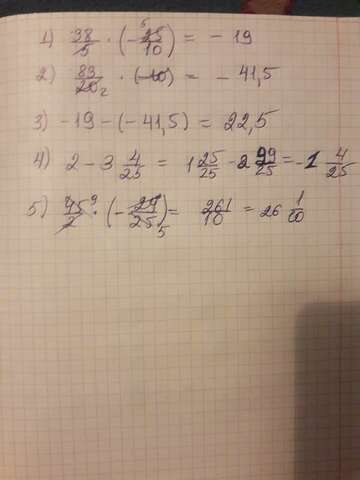 1) 38/5 · (- 25/10) = - 19
5
2) 83/20 · (-10) = - 41,5
2
3) -19 - (-41,5) = 22,5
4) 2 - 3 4/25 = 1 25/25 - 2 29/25 = -1 4/25
5) 45/2 · (- 29/25) = 261/10 = 26 1/10
9
5